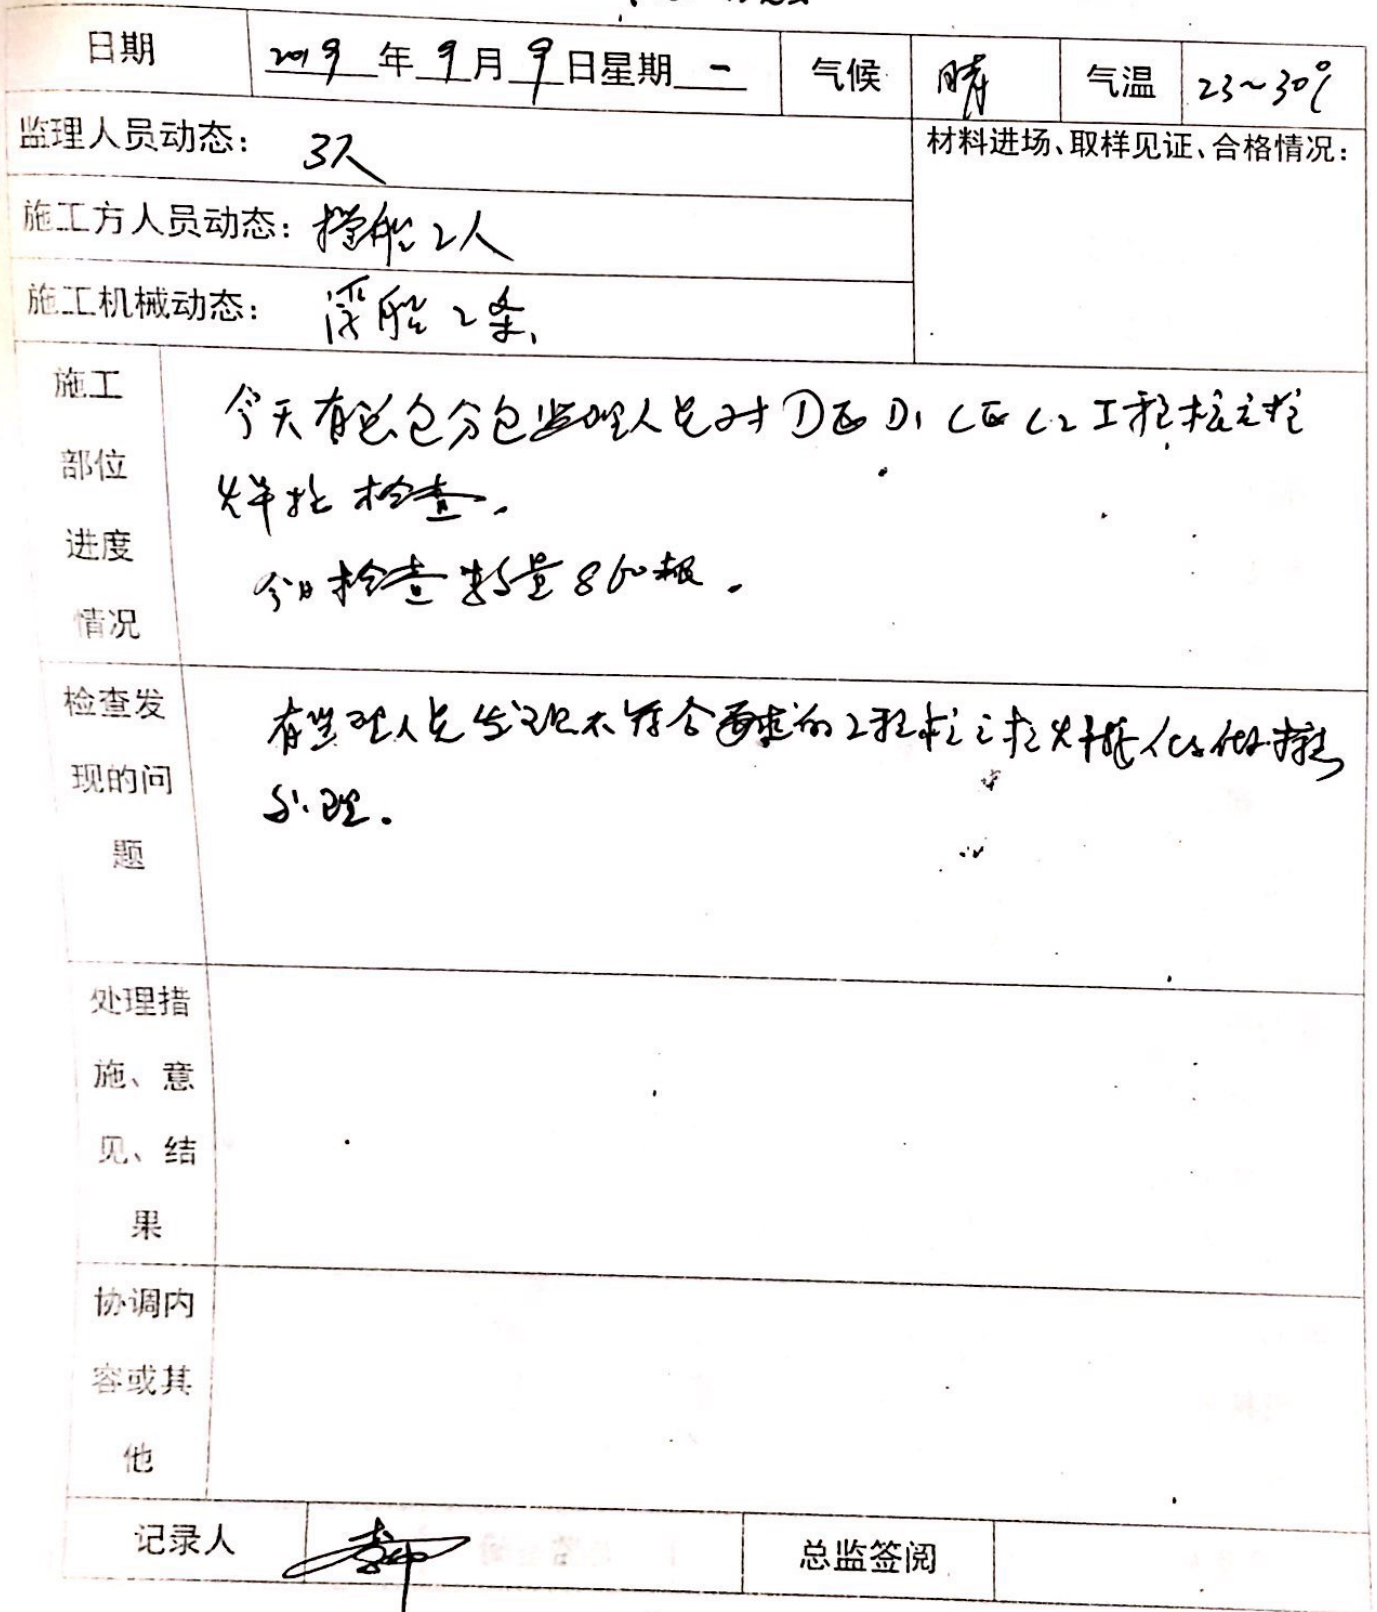 日期 2019年9月9日星期一 气候 晴 气温 23~30℃
监理人员动态: 3人 材料进场、取样见证、合格情况:
施工方人员动态: 撑船2人
施工机械动态: 浮船2条,
施工部位进度情况
今天有总包分包监理人员对D区D1 C区C2工程桩之桩
焊接检查.
今日检查数量860根.
检查发现的问题
有监理人员发现不符合要求的工程桩之桩焊接
处理.
处理措施、意见、结果
协调内容或其他
记录人 总监签阅